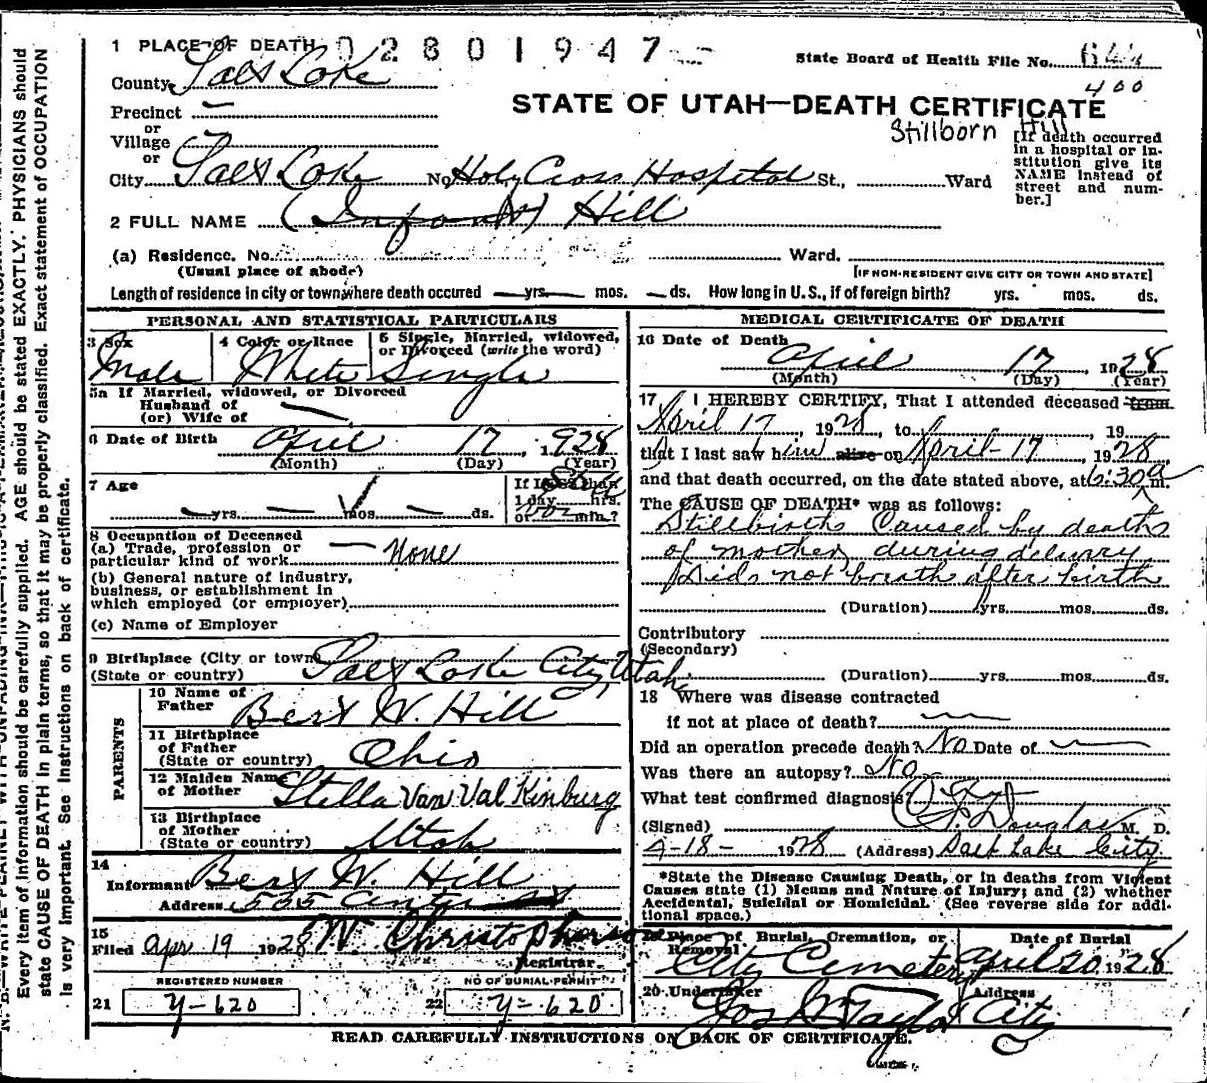 1 PLACE OF DEATH 02801947
State Board of Health File No.
County Salt Lake
400
Precinct —
STATE OF UTAH—DEATH CERTIFICATE
or
Village
or
Stillborn Hill
[If death occurred in a hospital or institution give its NAME instead of street and number.]
City Salt Lake No Holy Cross Hospital St., Ward
2 FULL NAME (Infant) Hill
(a) Residence. No. Ward.
(Usual place of abode) [IF NON-RESIDENT GIVE CITY OR TOWN AND STATE]
Length of residence in city or town where death occured — yrs. — mos. — ds. How long in U. S., if of foreign birth? yrs. mos. ds.
PERSONAL AND STATISTICAL PARTICULARS
3 Sex Male
4 Color or Race White
5 Single, Married, widowed, or Divorced (write the word) Single
5a If Married, widowed, or Divorced
Husband of
(or) Wife of —
6 Date of Birth April 17, 1928
(Month) (Day) (Year)
7 Age — yrs. — mos. — ds.
If less than 1 day hrs. or min.? Still born
8 Occupation of Deceased
(a) Trade, profession or
particular kind of work — None
(b) General nature of industry,
business, or establishment in
which employed (or employer)
(c) Name of Employer
9 Birthplace (City or town)
(State or country) Salt Lake City, Utah
PARENTS
10 Name of Father Bert W. Hill
11 Birthplace of Father (State or country) Ohio
12 Maiden Name of Mother Stella Van Valkinburg
13 Birthplace of Mother (State or country) Utah
14
Informant Bert W. Hill
Address 555 Center St
15
Filed Apr 19 1928 W Christopherson
Registrar
REGISTERED NUMBER
21 Y-620
NO OF BURIAL PERMIT
22 Y-620
MEDICAL CERTIFICATE OF DEATH
16 Date of Death April 17, 1928
(Month) (Day) (Year)
17 I HEREBY CERTIFY, That I attended deceased from
April 17 1928, to, 19
that I last saw him alive on April-17 1928,
and that death occurred, on the date stated above, at 6:30 a m.
The CAUSE OF DEATH* was as follows:
Stillbirth Caused by death
of mother during delivery
Did not breath after birth
(Duration) yrs. mos. ds.
Contributory
(Secondary)
(Duration) yrs. mos. ds.
18 Where was disease contracted
if not at place of death? —
Did an operation precede death? No Date of —
Was there an autopsy? No
What test confirmed diagnosis?
(Signed) Douglas M. D.
4-18- 1928 (Address) Salt Lake City
*State the Disease Causing Death, or in deaths from Violent
Causes state (1) Means and Nature of Injury; and (2) whether
Accidental, Suicidal or Homicidal. (See reverse side for addi-
tional space.)
19 Place of Burial, Cremation, or Removal City Cemetery
Date of Burial April 20 1928
20 Undertaker Jos Wm Taylor
Address City
READ CAREFULLY INSTRUCTIONS ON BACK OF CERTIFICATE.
Every item of information should be carefully supplied. AGE should be stated EXACTLY. PHYSICIANS should
state CAUSE OF DEATH in plain terms, so that it may be properly classified. Exact statement of OCCUPATION
is very important. See Instructions on back of certificate.